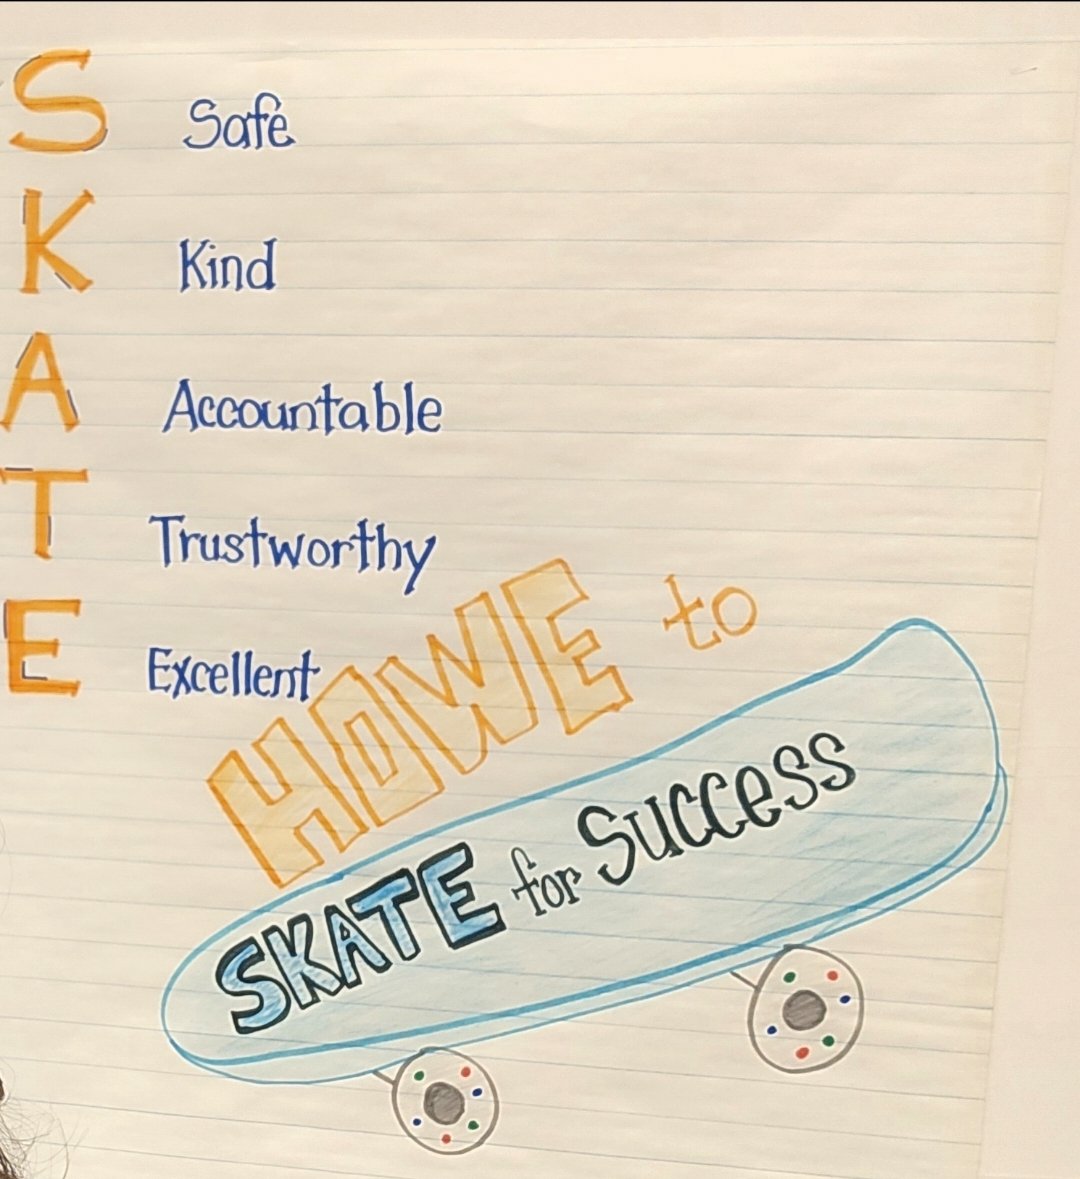 S Safe
K Kind
A Accountable
T Trustworthy
E Excellent
HOWE to
SKATE for Success